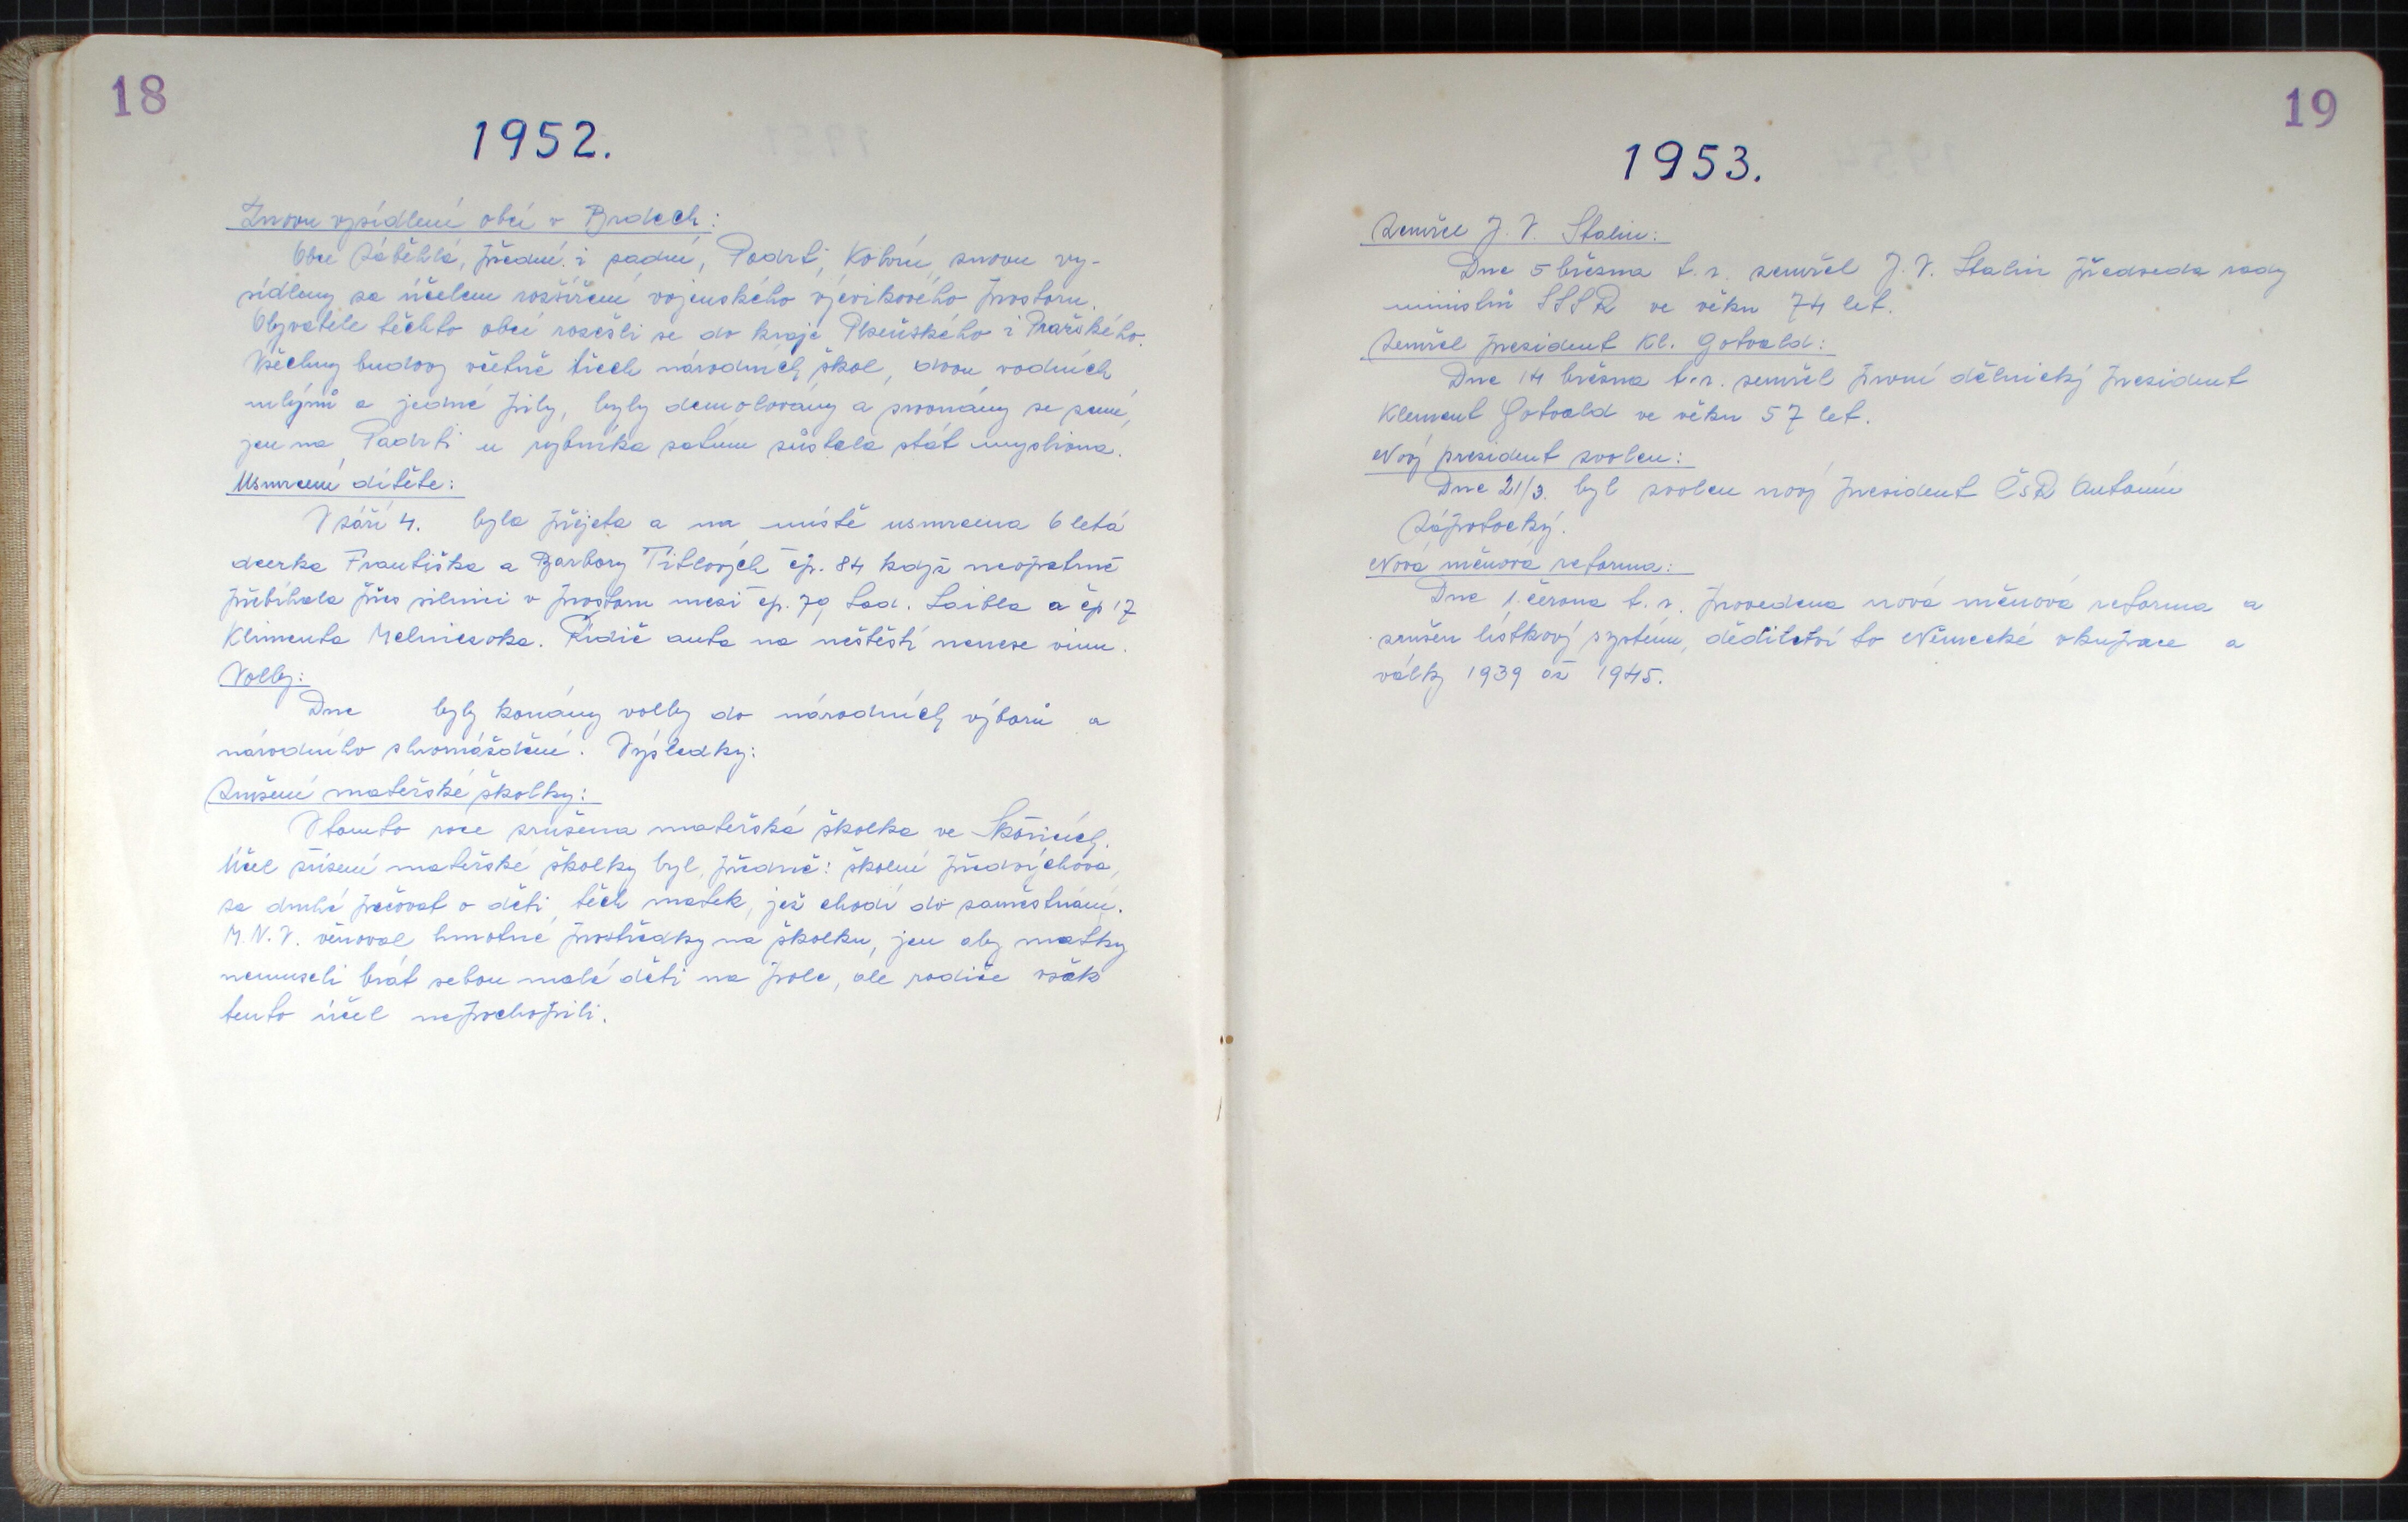 18
1952.
Znovu vysídlení obcí v Brdech:
Obce Záběhlá, přední i zadní, Padrť, Kolvín, znovu vy-
sídleny za účelem rozšíření vojenského výcvikového prostoru.
Obyvatele těchto obcí rozešli se do kraje Plzeňského i Pražského.
Všechny budovy včetně třech národních škol, dvou vodních
mlýnů a jedné pily, byly demolovány a srovnány se zemí,
jen na Padrti u rybníka zatím zůstala stát myslivna.
Usmrcení dítěte:
V září 4. byla přejeta a na místě usmrcena 6 letá
dcerka Františka a Barbory Titlových čp. 84 když neopatrně
přebíhala přes silnici v prostoru mezi čp. 79 Lad. Laibla a čp 17
Klimenta Melniczoka. Řidič auta na neštěstí nenese vinu.
Volby:
Dne byly konány volby do národních výborů a
národního shromáždění. Výsledky:
Zrušení mateřské školky:
V tomto roce zrušena mateřská školka ve Skořicích.
Účel zřízení mateřské školky byl, předně: školní předvýchova,
za druhé pečovat o děti těch matek, jež chodí do zaměstnání.
M.N.V. věnoval hmotné prostředky na školku, jen aby matky
nemuseli brát sebou malé děti na pole, ale rodiče však
tento účel nepochopili.
19
1953.
Zemřel J. V. Stalin:
Dne 5 března t. r. zemřel J. V. Stalin předseda rady
ministrů SSSR ve věku 74 let.
Zemřel president Kl. Gotvald:
Dne 14 března t. r. zemřel první dělnický president
Klement Gotvald ve věku 57 let.
Nový president zvolen:
Dne 21/3. byl zvolen nový president ČSR Antonín
Zápotocký.
Nová měnová reforma:
Dne 1. června t. r. provedena nová měnová reforma a
zrušen lístkový systém, dědictví to Německé okupace a
války 1939 až 1945.